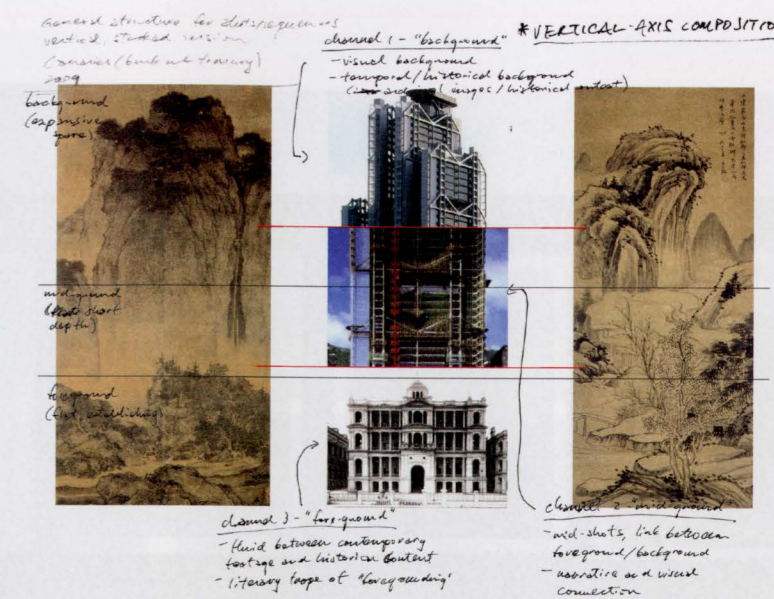 General structure for shot sequences
vertical, stacked version
(bank and treasury)
2009
channel 1 - "background"
- visual background
- temporal/historical background
images / historical
* VERTICAL-AXIS COMPOSITIO
background
(expansive
space)
mid-ground
short
depth)
foreground
establishing)
channel 3 - "fore-ground"
- fluid between contemporary
footage and historical content
- literary trope of "foregrounding"
channel 2 - "mid-ground"
- mid-shots, link between
foreground/background
- narrative and visual
connection